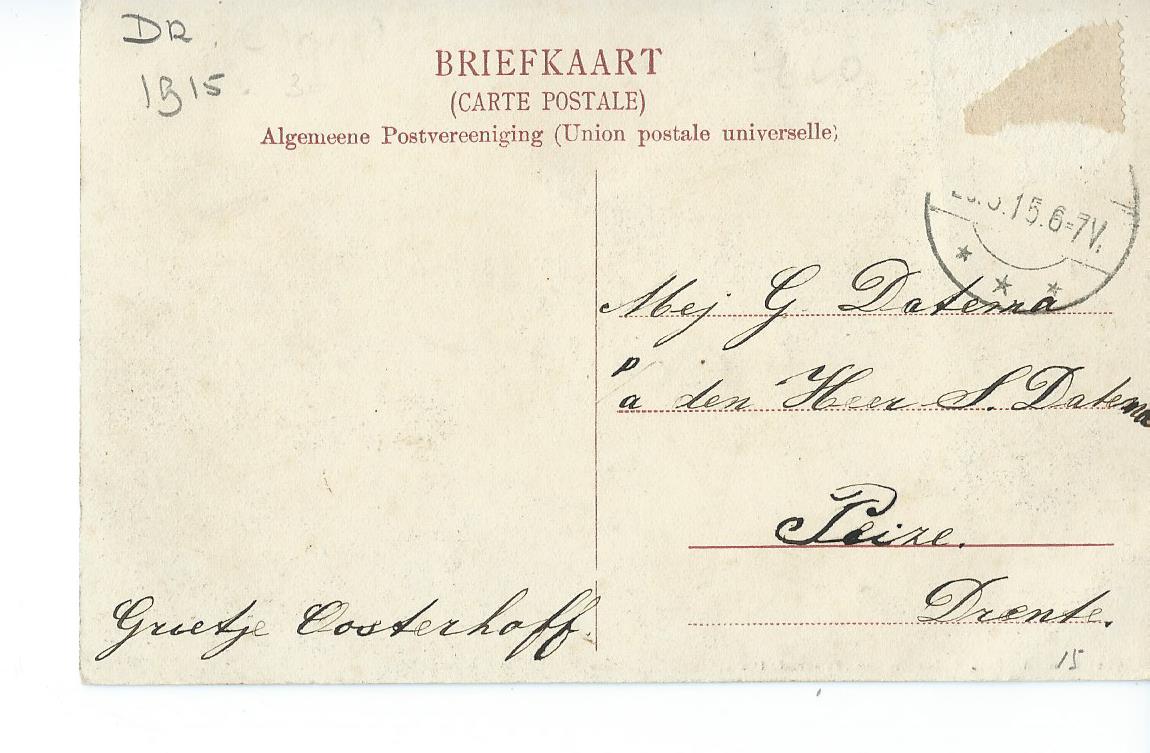 DR
1915
BRIEFKAART
(CARTE POSTALE)
Algemeene Postvereeniging (Union postale universelle)
.15.6-7V.
Mej G. Datema
p/a den Heer S. Datema
Peize.
Drente.
Grietje Oosterhoff.
15